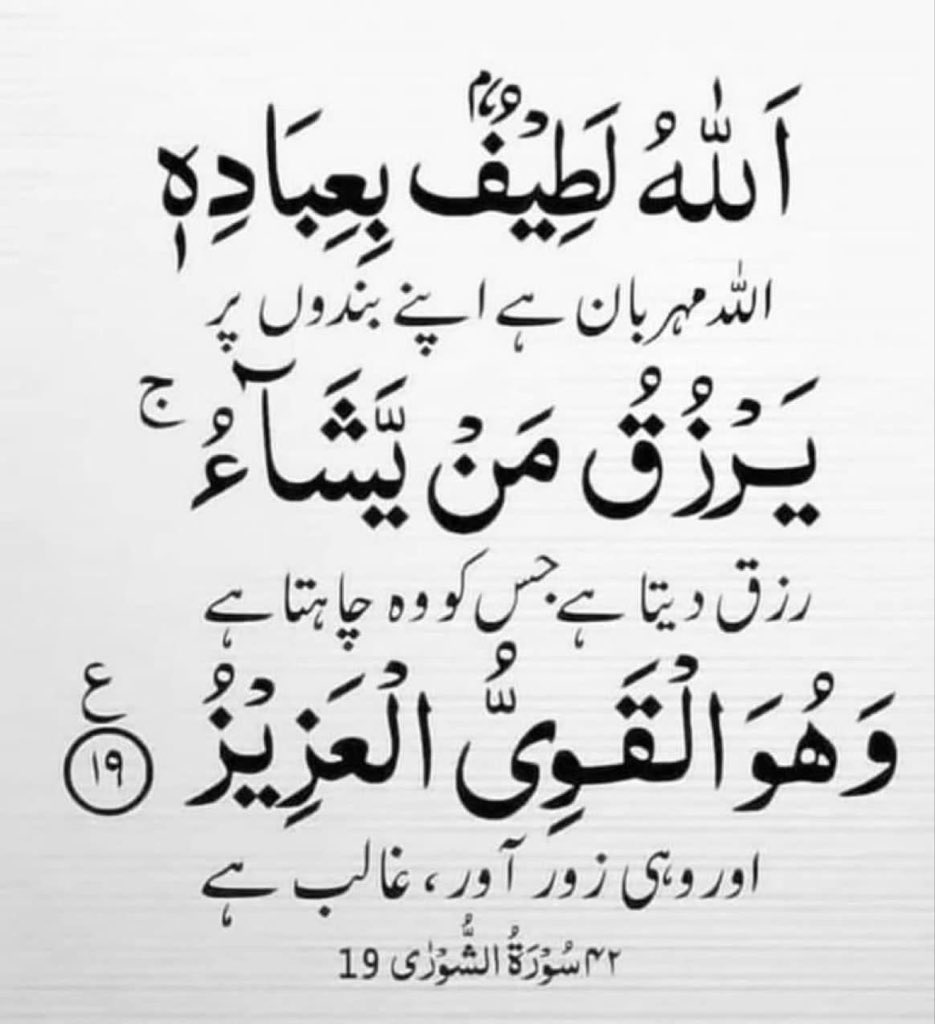 اَللّٰهُ لَطِيْفٌۢ بِعِبَادِهٖ
اللہ مہربان ہے اپنے بندوں پر
يَرْزُقُ مَنْ يَّشَآءُ ۚ
رزق دیتا ہے جس کو وہ چاہتا ہے
وَهُوَ الْقَوِىُّ الْعَزِيْزُ ع ۱۹
اور وہی زور آور، غالب ہے
۴۲ سُوْرَةُ الشُّوْرٰى 19